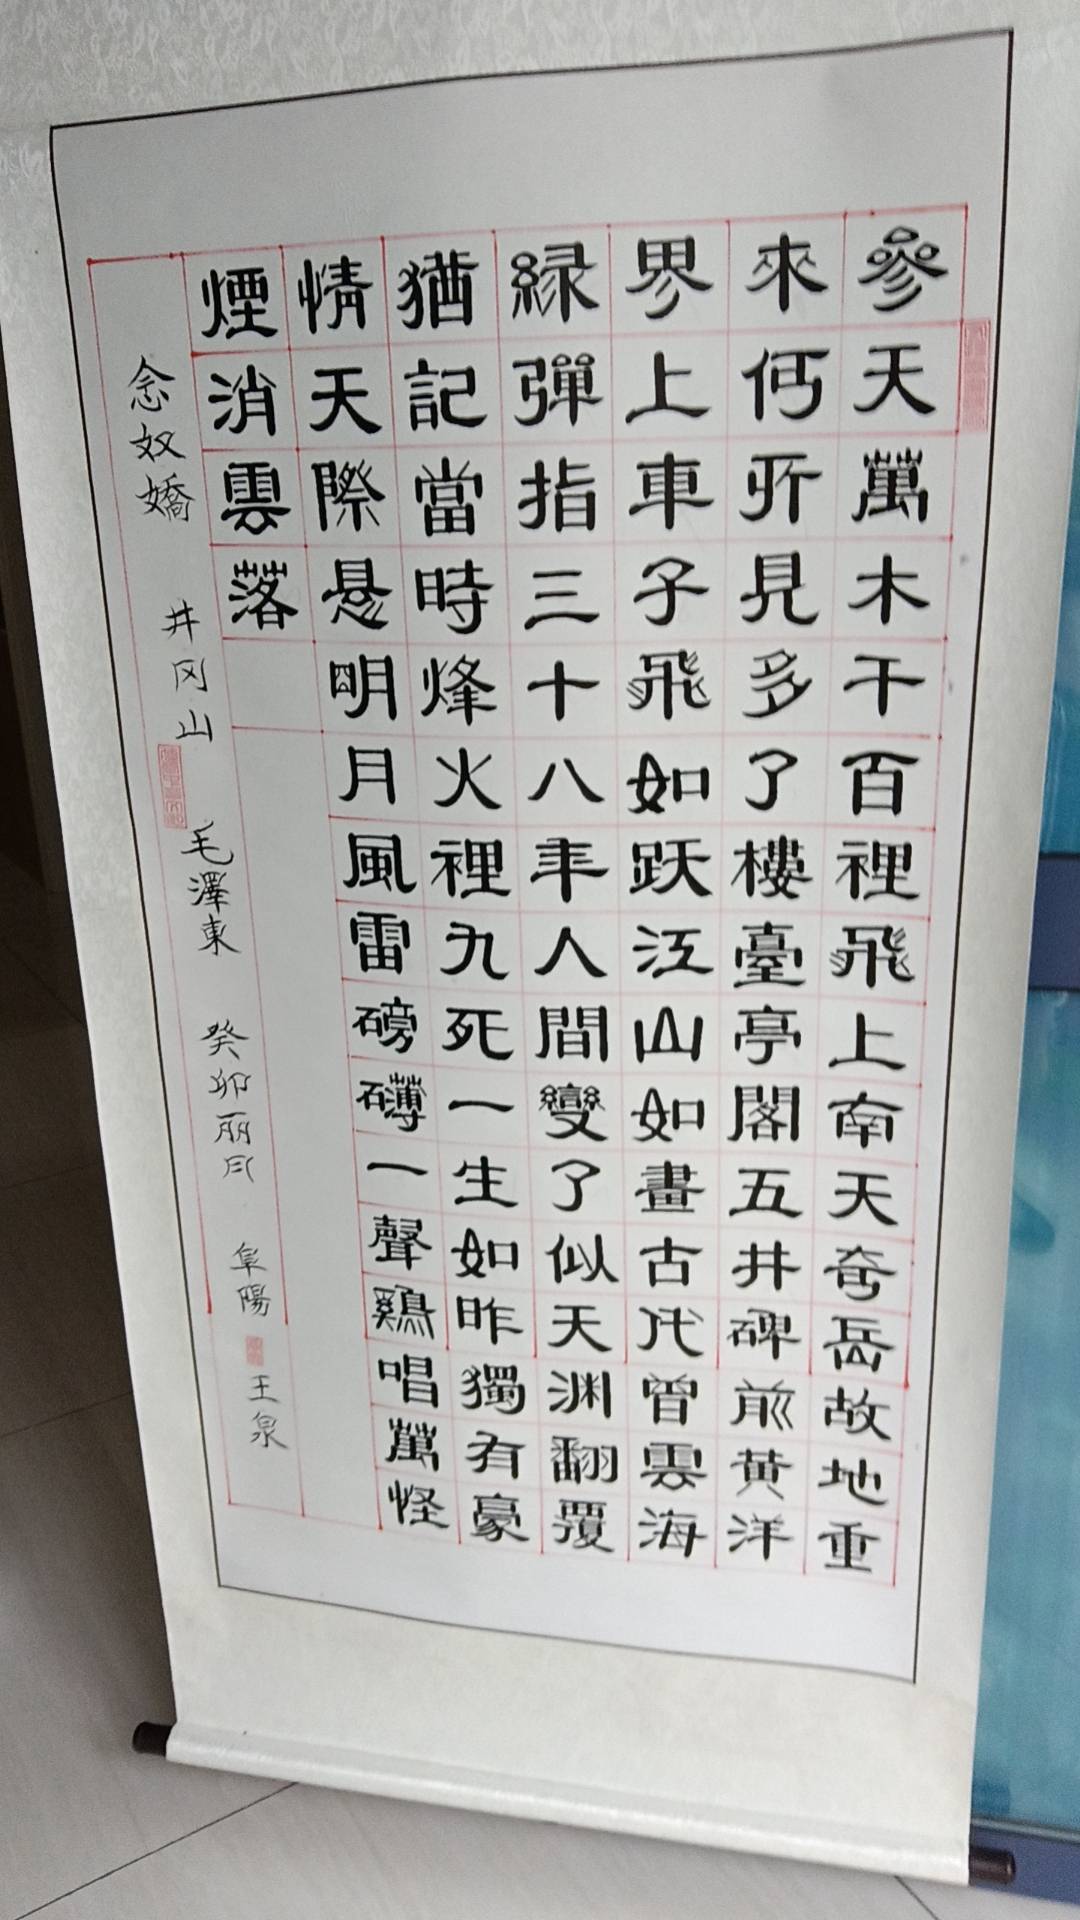 參天萬木千百裡飛上南天奇岳故地重
來何所見多了樓臺亭閣五井碑前黄洋
界上車子飛如跃江山如畫古代曾雲海
緑彈指三十八年人間變了似天渊翻覆
猶記當時烽火裡九死一生如昨獨有豪
情天際悬明月風雷磅礴一聲鷄唱萬怪
煙消雲落
念奴嬌 井冈山 毛澤東 癸卯丽月 阜陽 王泉